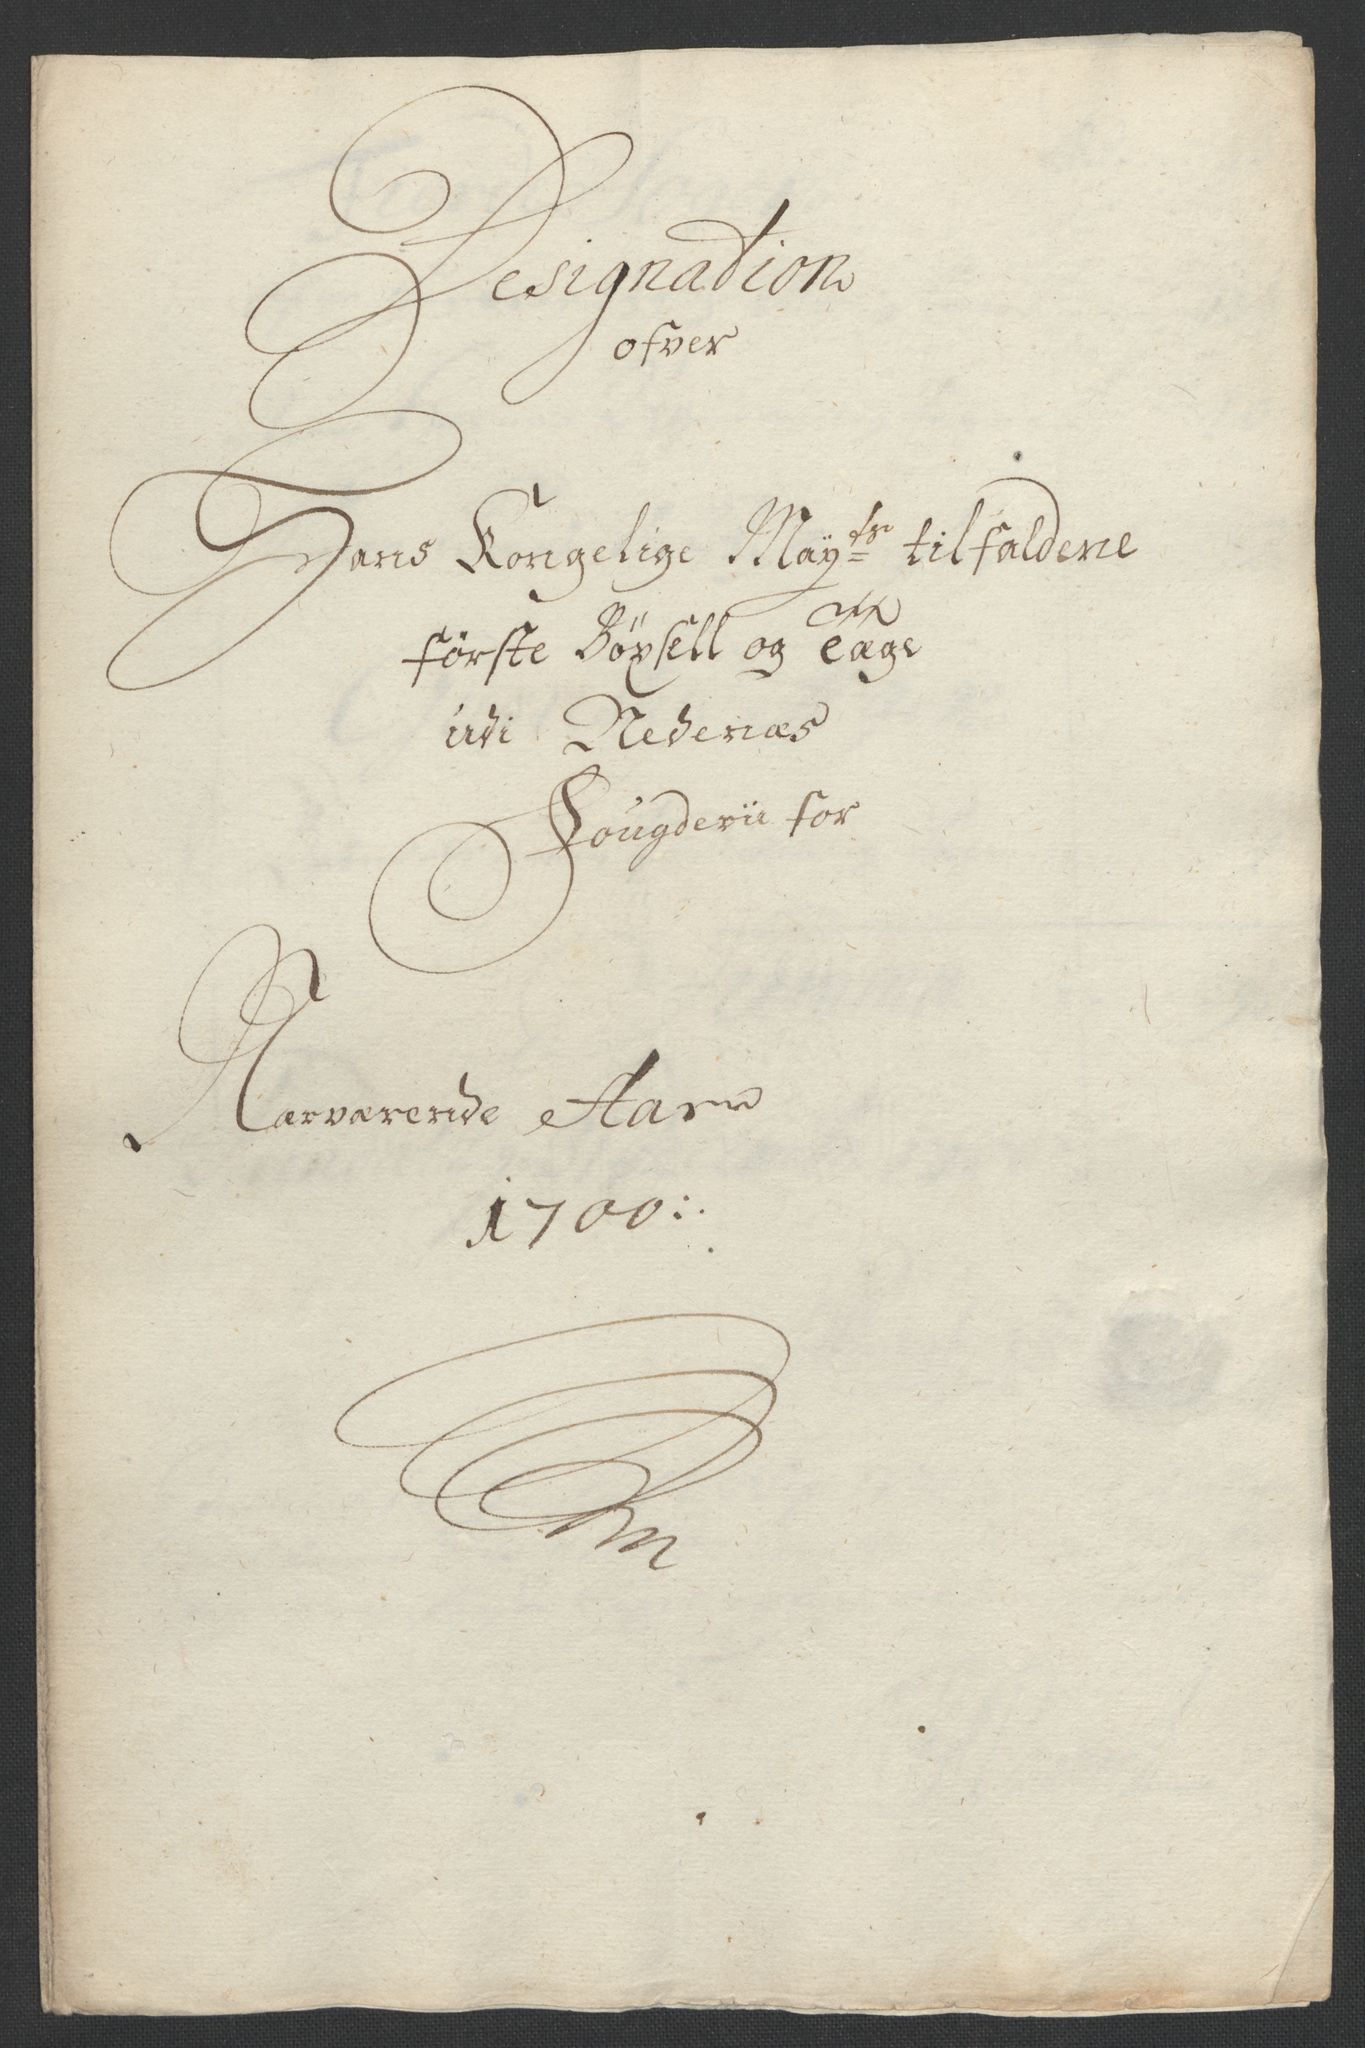 Designation
ofver
Hans Kongelige Maÿts tilfaldene
förste Böxsell og Tæge
udi Nedenæs
Fougderii for
Nærværende Aar
1700: